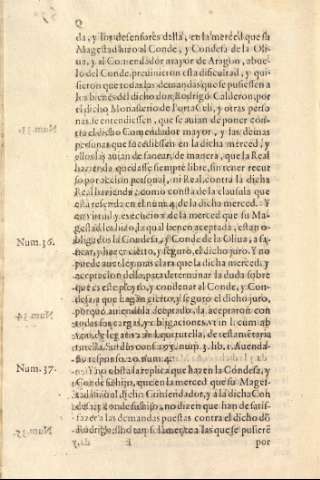 da, y los defensores della, en la merced que su
Magestad hizo al Conde, y Condesa de la Oli-
ua, y al Comendador mayor de Aragon, abue-
lo del Conde, preuinieron esta dificultad, y qui-
sieron que todas las demandas que se pusiessen a
los bienes del dicho don Rodrigo Calderon, por
el dicho Monasterio de PortaCeli, y otras perso
nas, se entendiessen, que se auian de poner con-
tra el dicho Comendador mayor, y las demas
personas que sucediessen en la dicha merced, y
ellos las auian de sanear, de manera, que la Real
hazienda quedasse siempre libre, sin tener recur
so por accion personal, ni Real, contra la dicha
Real hazienda, como consta de la clausula que
esta referida en el num. 4. de la dicha merced. Y
en virtud y execucion de la merced que su Ma-
gestad les hizo, la qual tienen aceptada, estan o-
Num. 36. bligados la Condesa, y Conde de la Oliua, a sa-
near, y hazer cierto, y seguro, el dicho juro. Y no
puede auer ley mas clara que la dicha merced, y
aceptacion della, para determinar la duda sobre
que es este pleyto, y condenar al Conde, y Con-
desa, a que hagan cierto, y seguro el dicho juro,
porque auiendola aceptado, la aceptaron con
todas sus cargas, y obligaciones,
Num. 37. Y no obsta la replica que hazen la Condesa, y
Conde su hijo, que en la merced que su Mages-
tad hizo al dicho Comendador, y a la dicha Con
desa, y Conde su hijo, no dizen que han de satis-
fazer a las demandas puestas contra el dicho dõ
Rodrigo, sino tan solamente a las que se pusierẽ
por